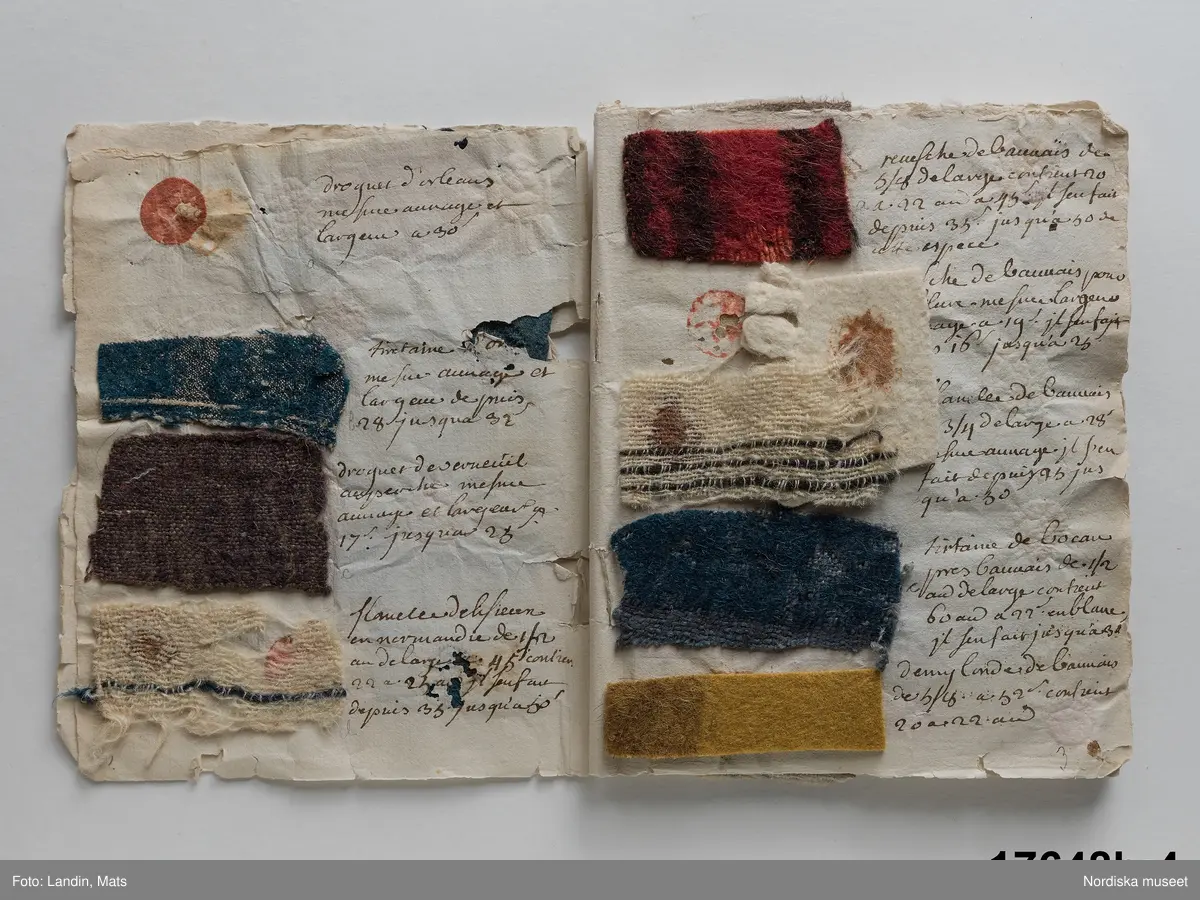 droguet d'orleans
mesme aunage et
largeur a 30ˢ
tirtaine d'or
mesme aunage et
largeur depuis
28 jusqu'a 32ˢ
droguet de verneuil
au perche mesme
aunage et largeur
17ˢ jusqua 28
flanelle de lisieux
en normandie de 1/2
au de large 45ˢ contien
22 a jl sen fait
depuis 35 jusqu'a
revesche de bauuais de
5/8 de large contient 20
a 22 au a 45ˢ jl sen fait
depuis 35ˢ jusqu'a 50 de
cette espece
che de bauuais pour
mesme largeur
age a 19ˢ jl sen fait
16ˢ jusqu'a 25
flanelle de bauuais
3/4 de large a 28ˢ
mesme aunage jl sen
fait depuis 25 jus
qu'a 30
tirtaine de bocau
pres bauuais de 1/2
au de large contient
60 au a 22ˢ en blanc
jl sen fait jusqu'a 30
demy londre de bauuais
de 5/8 a 52ˢ contient
20 a 22 au
3
Foto: Landin, Mats
Nordiska museet